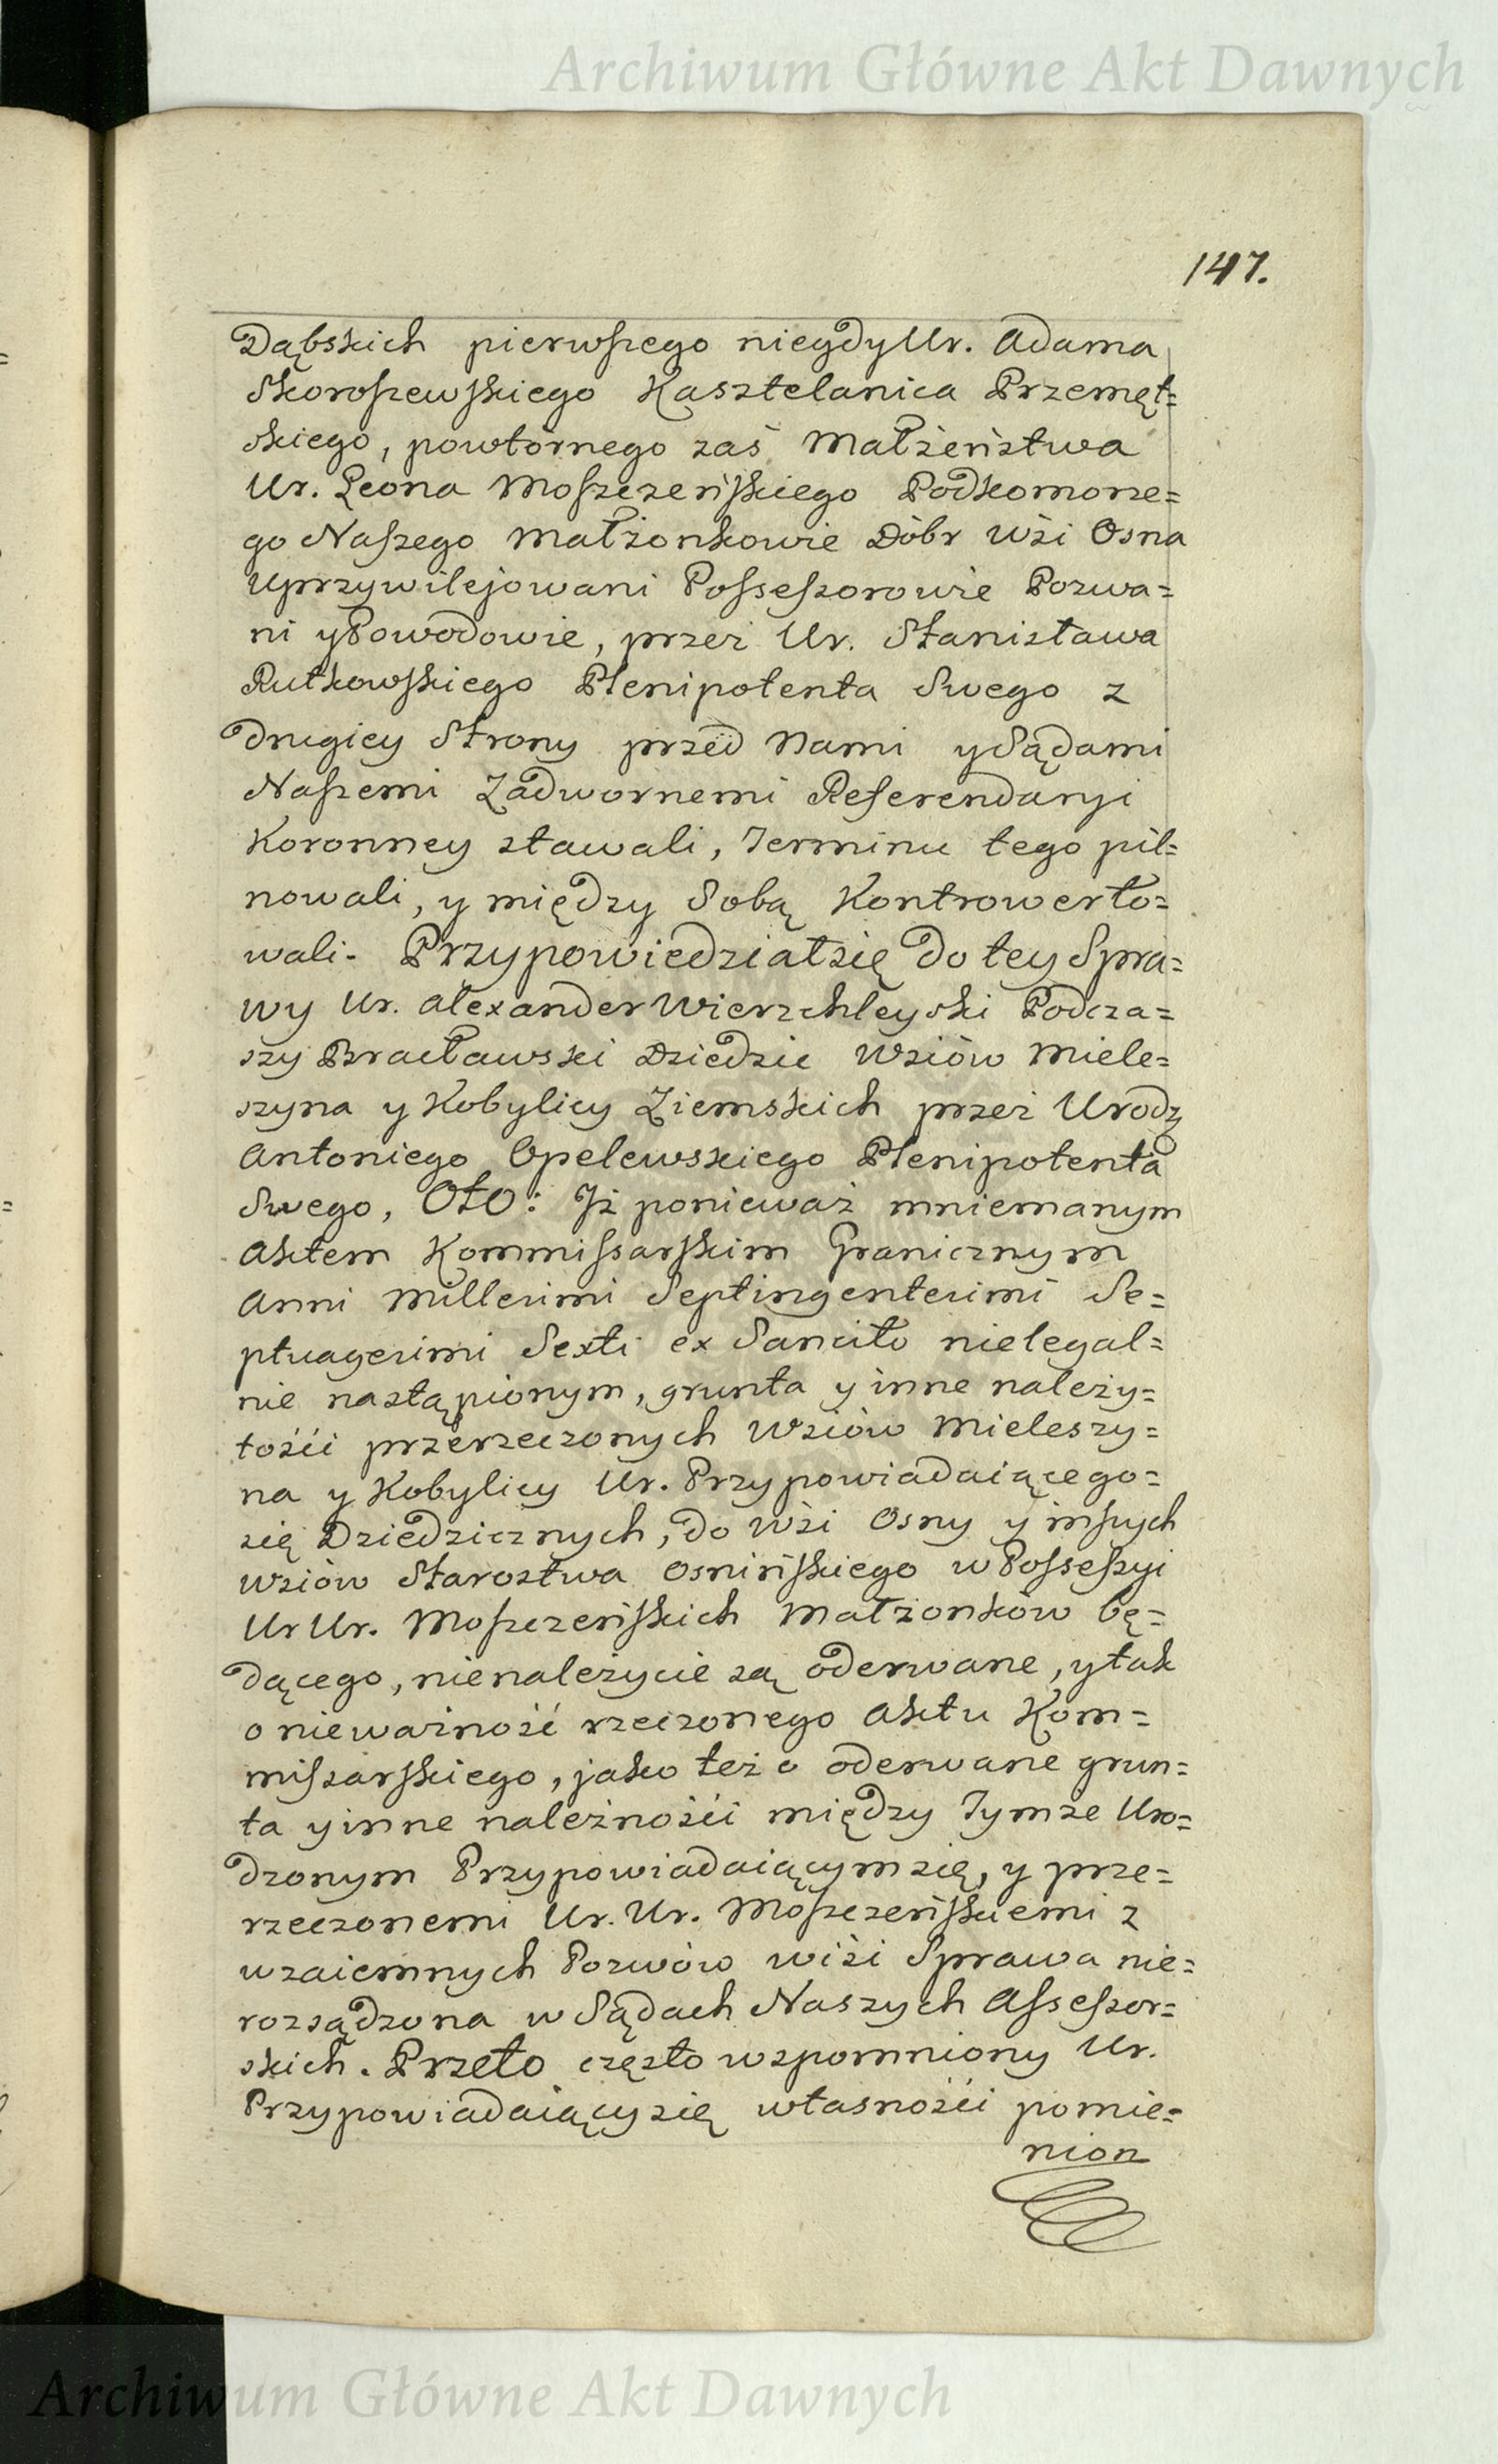 Archiwum Główne Akt Dawnych
147.
Dąbskich pierwszego niegdy Ur. Adama
Skoroszewskiego Kasztelanica Przemęt=
skiego, powtórnego zaś Małżeństwa
Ur. Leona Moszczeńskiego Podkomorze=
go Naszego Małżonkowie Dóbr Wśi Osna
Uprzywilejowani Possessorowie Pozwa=
ni y Powodowie, przez Ur. Stanisława
Rutkowskiego Plenipotenta Swego z
drugiey Strony przed Nami y Sądami
Naszemi Zadwornemi Referendaryi
Koronney stawali, Terminu tego pil=
nowali, y między Sobą Kontrowerto=
wali. Przypowiedział się do tey Spra=
wy Ur. Alexander Wierzchleyski Podcza=
szy Bracławski Dziedzic Wsiów Miele=
szyna y Kobylicy Ziemskich przez Urodz
Antoniego Opelewskiego Plenipotenta
Swego, Oto: Iż ponieważ mniemanym
Aktem Kommissarskim Granicznym
Anni Millesimi Septingentesimi Se=
ptuagesimi Sexti ex Sancito nielegal=
nie nastąpionym, grunta y inne należy=
tośći przerzeczonych Wsiów Mieleszy=
na y Kobylicy Ur. Przypowiadaiącego=
się Dziedzicznych, do Wśi Osny y inszych
Wsiów Starostwa Osnińskiego w Possessyi
Ur Ur. Moszczeńskich Małżonków bę=
dącego, nienależycie są oderwane, y tak
o nieważność rzeczonego Aktu Kom=
missarskiego, jako też o oderwane grun=
ta y inne należnośći między Tymże Uro=
dzonym Przypowiadaiącym się, y prze=
rzeczonemi Ur. Ur. Moszczeńskiemi z
wzaiemnych Pozwów wiśi Sprawa nie=
rozsądzona w Sądach Naszych Assessor=
skich. Przeto często wspomniony Ur.
Przypowiadaiący się własnośći pomie=
nion
Archiwum Główne Akt Dawnych